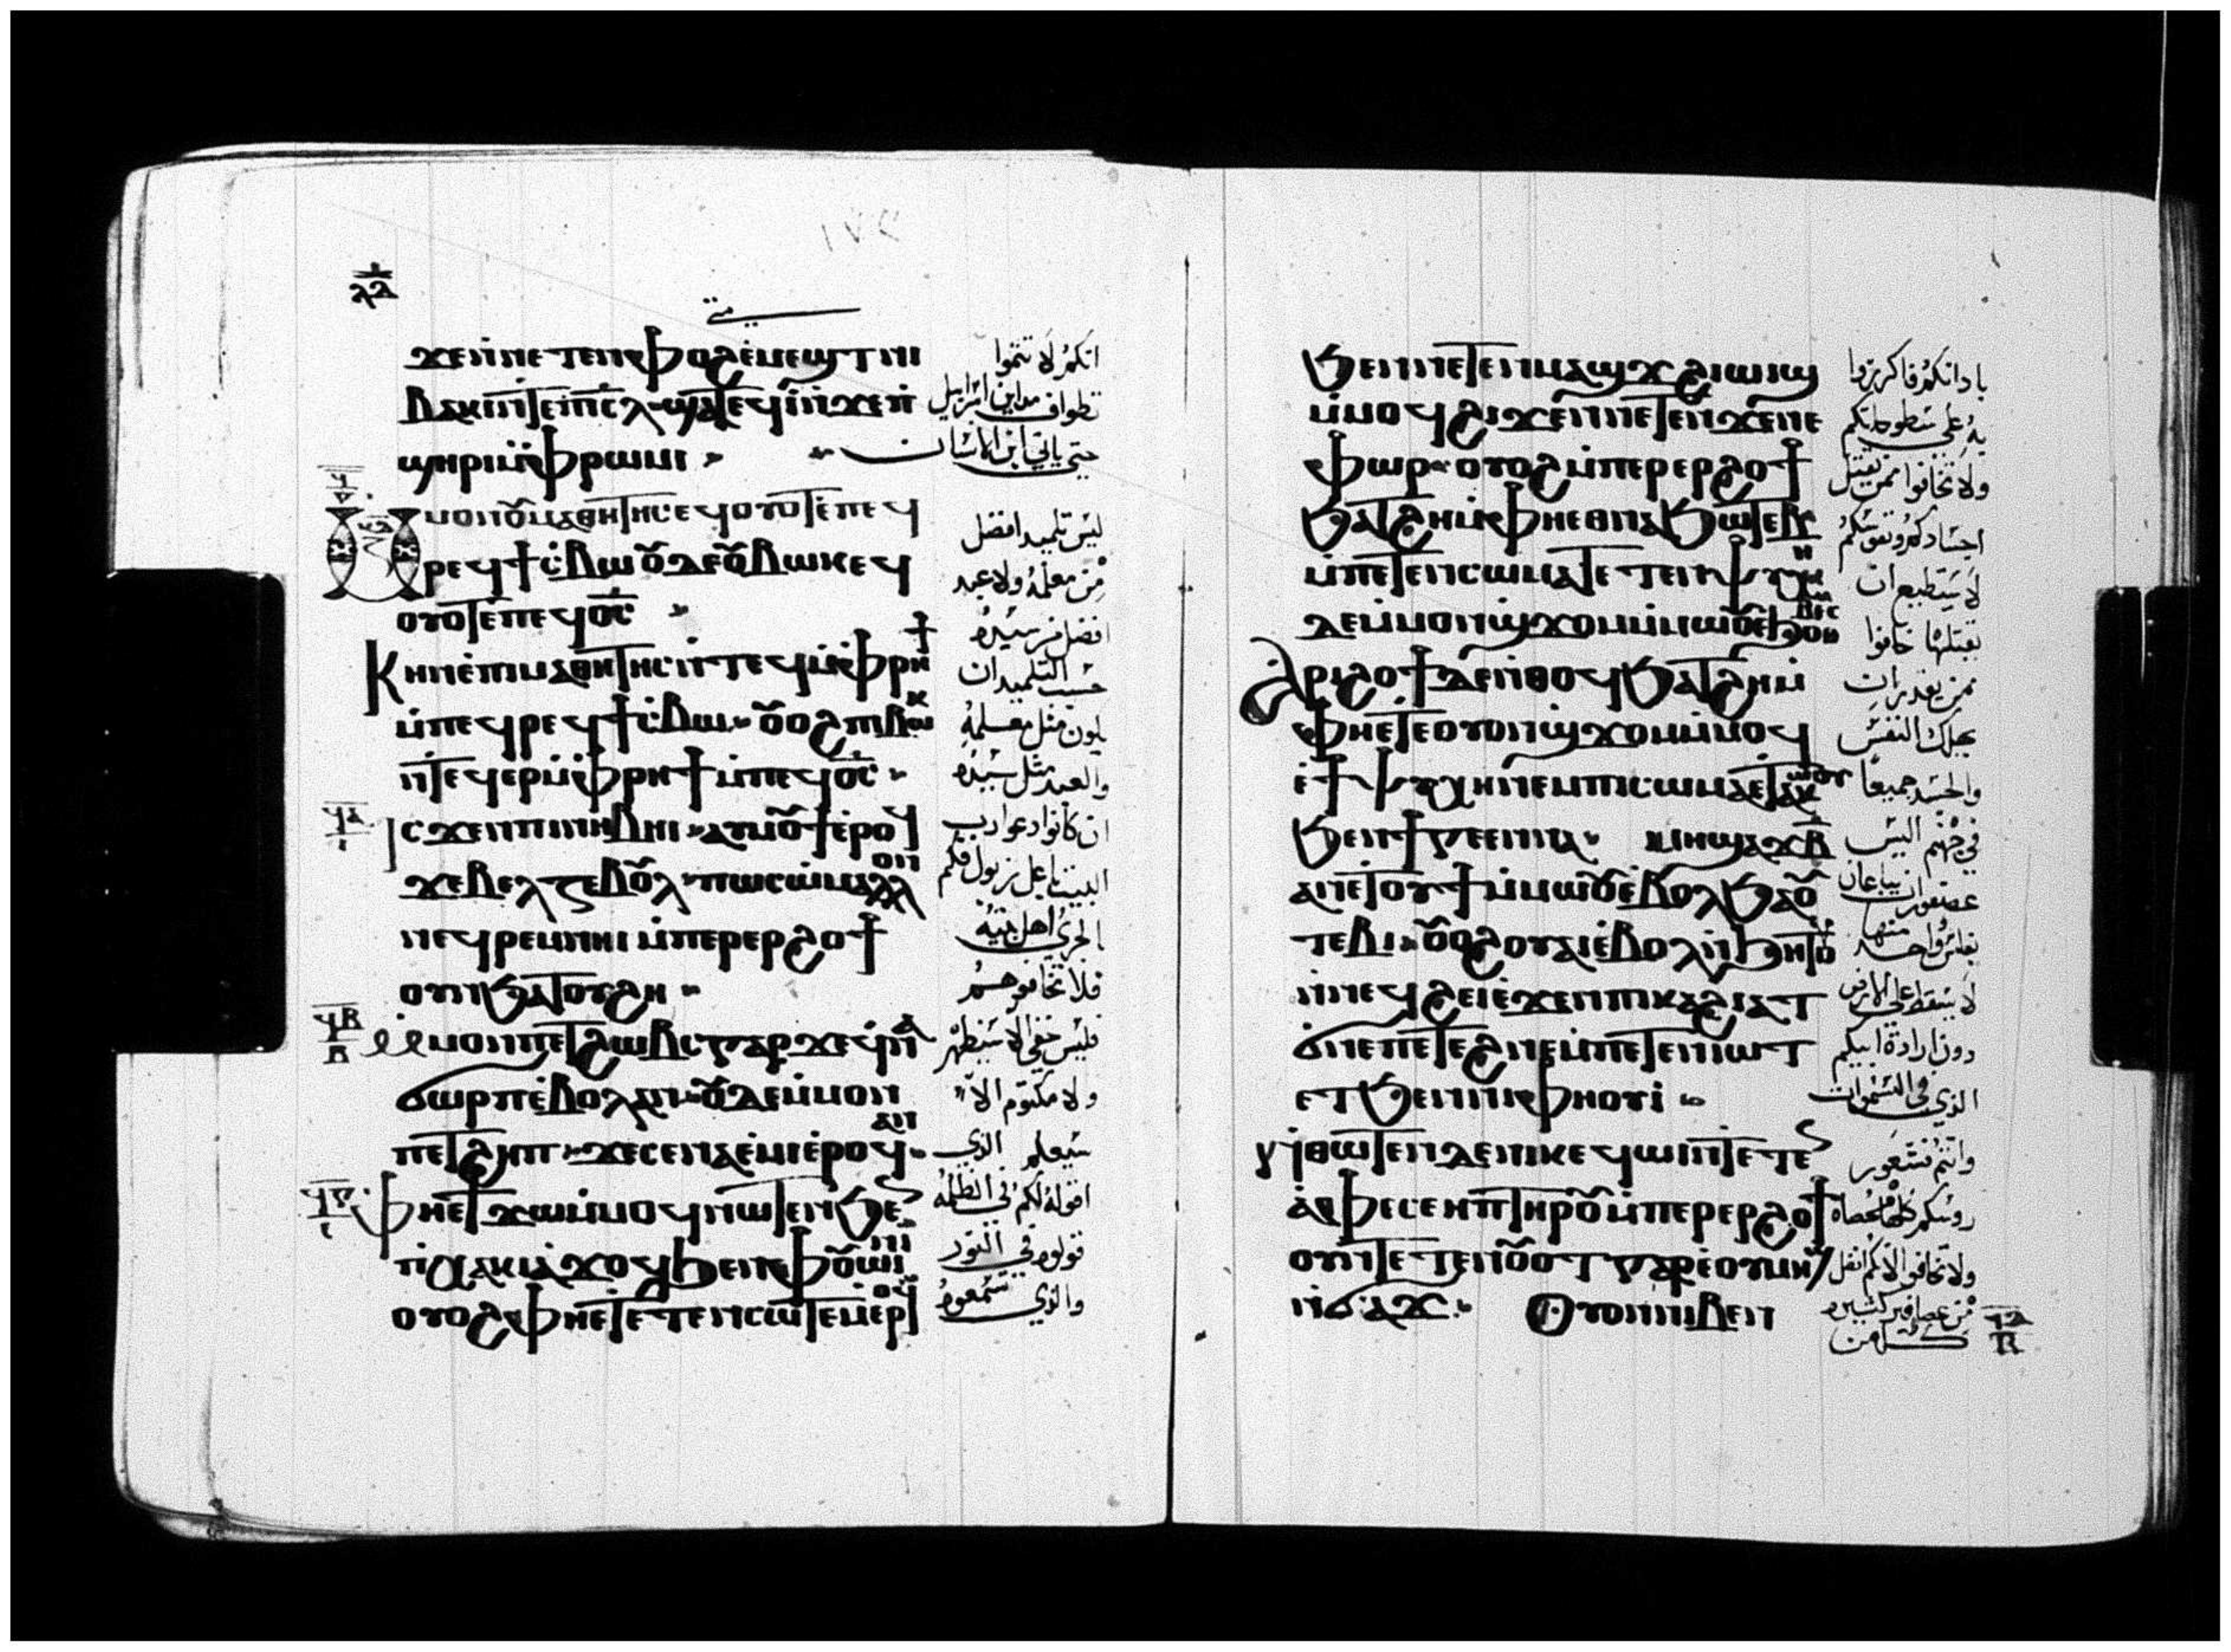 ⲗⲁ
متى
ϫⲉⲛⲛⲉⲧⲉⲛⲫⲟϩⲉⲙⲉϣⲧⲛⲓ
ⲃⲁⲕⲓⲛⲧⲉⲡⲓⲥⲗ ϣⲁⲧⲉϥⲓⲛϫⲉⲡ
ϣⲏⲣⲓⲙⲫⲣⲱⲙⲓ
ⲙⲙⲟⲛⲟⲩⲙⲁⲑⲏⲧⲏⲥⲉϥⲟⲩⲟⲧⲉⲡⲉϥ
ⲣⲉϥϯⲥⲃⲱ ⲟⲩⲇⲉⲟⲩⲃⲱⲕⲉϥ
ⲟⲩⲟⲧⲉⲡⲉϥⲟⲥ
ⲕⲏⲛⲉⲡⲓⲙⲁⲑⲏⲧⲏⲥⲛⲧⲉϥⲙⲫⲣⲏϯ
ⲙⲡⲉϥⲣⲉϥϯⲥⲃⲱ ⲟⲩⲟϩⲡⲓⲃⲱⲕ
ⲛⲧⲉϥⲉⲣⲙⲫⲣⲏϯⲙⲡⲉϥⲟⲥ
ⲓⲥϫⲉⲛⲡⲓⲛⲏⲃⲏⲓ ⲁⲩⲙⲟⲩϯⲉⲣⲟϥ
ϫⲉⲃⲉⲗⲍⲉⲃⲟⲩⲗ ⲡⲱⲥⲱⲙⲁⲗⲗⲟⲛ
ⲛⲉϥⲣⲉⲙⲛⲏⲓ ⲙⲡⲉⲣⲉⲣϩⲟϯ
ⲟⲩⲛϧⲁⲧⲟⲩϩⲏ
ⲙⲙⲟⲛⲡⲉⲧϩⲱⲃⲥⲅⲁⲣϫⲉϥⲛⲁ
ϭⲱⲣⲡⲉⲃⲟⲗⲁⲛ ⲟⲩⲇⲉⲙⲙⲟⲛ
ⲡⲉⲧϩⲏⲡ ϫⲉⲥⲉⲛⲁⲉⲙⲓⲉⲣⲟϥⲁⲛ
ⲫⲏⲉⲧϫⲱⲙⲙⲟϥⲛⲱⲧⲉⲛϧⲉⲛ
ⲡⲭⲁⲕⲓⲁϫⲟϥϧⲉⲛⲫⲟⲩⲱⲓⲛⲓ
ⲟⲩⲟϩⲫⲏⲉⲧⲉⲧⲉⲛⲥⲱⲧⲉⲙⲉⲣⲟϥ
انكم لا تتموا
تطواف مداين اسراييل
حتى ياتي ابن الانسان
ليس تلميد افضل
من معلمه ولا عبد
افضل من سيده
حسب التلميد ان
يكون مثل معلمه
والعبد مثل سيده
ان كانوا دعوا رب
البيت باعل زبول فكم
بالحري اهل بيته
فلا تخافوهم
فليس خفي الا سيظهر
ولا مكتوم الا
سيعلم الذي
اقوله لكم في الظلمه
قولوه في النور
والذي تسمعوه
ϧⲉⲛⲛⲉⲧⲉⲛⲙⲁϣϫ ϩⲓⲱⲓϣ
ⲙⲙⲟϥϩⲓϫⲉⲛⲛⲉⲧⲉⲛϫⲉⲛⲉ
ⲫⲱⲣ ⲟⲩⲟϩⲙⲡⲉⲣⲉⲣϩⲟϯ
ϧⲁⲧϩⲏⲙⲫⲏⲉⲑⲛⲁϧⲱⲧⲉⲃ
ⲙⲡⲉⲧⲉⲛⲥⲱⲙⲁⲧⲉⲧⲉⲛⲯⲩⲭⲏ
ⲇⲉⲙⲙⲟⲛϣϫⲟⲙⲙⲙⲱⲟⲩⲉϧⲟⲑⲃⲉⲥ
ⲁⲣⲓϩⲟϯⲇⲉⲛⲑⲟϥϧⲁⲧϩⲏⲙ
ⲫⲏⲉⲧⲉⲟⲩⲟⲛϣϫⲟⲙⲙⲙⲟϥ
ⲉϯⲯⲩⲭⲏⲛⲉⲙⲡⲓⲥⲱⲙⲁⲉⲧⲁⲕⲱⲟⲩ
ϧⲉⲛϯⲅⲉⲉⲛⲛⲁ ⲙⲏϣⲁϫⲃ
ⲁⲛⲉⲧⲟⲩϯⲙⲙⲱⲟⲩⲉⲃⲟⲗϧⲁⲟⲩ
ⲧⲉⲃⲓ ⲟⲩⲟϩⲟⲩⲁⲓⲉⲃⲟⲗⲛϧⲏⲧⲟⲩ
ⲛⲛⲉϥϩⲉⲓⲉϫⲉⲛⲡⲓⲕⲁϩⲓⲁⲧ
ϭⲛⲉⲡⲉⲧⲉϩⲛⲉⲙⲡⲉⲧⲉⲛⲓⲱⲧ
ⲉⲧϧⲉⲛⲛⲓⲫⲏⲟⲩⲓ
ⲛⲑⲱⲧⲉⲛⲇⲉⲛⲓⲕⲉϥⲱⲓⲛⲧⲉⲧⲉ
ⲁⲫⲉⲥⲉⲏⲡⲧⲏⲣⲟⲩⲙⲡⲉⲣⲉⲣϩⲟϯ
ⲟⲩⲛⲧⲉⲧⲉⲛⲟⲩⲟⲧ ⲅⲁⲣⲉⲟⲩⲙⲏϣ
ⲛϭⲁϫ ⲟⲩⲟⲛⲛⲓⲃⲉⲛ
باداتكم فاكرزوا
به على سطوحاتكم
ولا تخافوا ممن يقتل
اجسادكم ونفوسكم
لا يستطيع ان
يقتلها خافوا
ممن يقدر ان
يهلك النفس
والجسد جميعا
في جهنم اليس
عصفوران يباعان
بفلس وواحد منهما
لا يسقط على الارض
دون ارادة ابيكم
الذي في السموات
وانتم فشعور
روسكم كلها محصاه
ولا تخافوا لانكم افضل
من عصافير كثيره